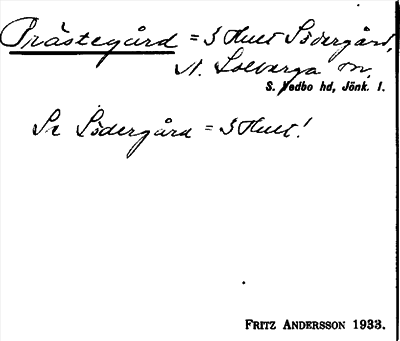 Prästegård = 3 Hult Södergård,
N. Solberga sn,
S. Vedbo hd, Jönk. l.
Se Södergård = 3 Hult!
FRITZ ANDERSSON 1933.